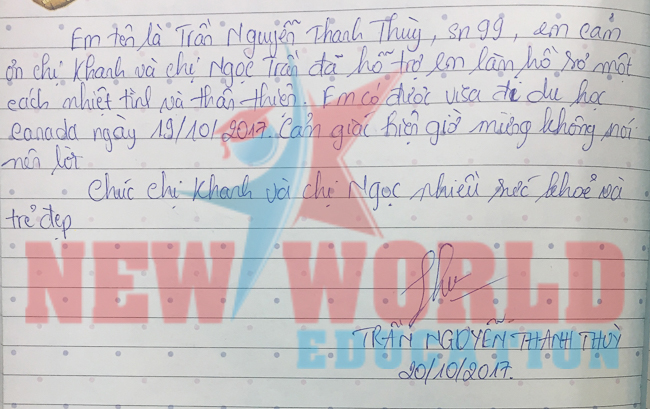 Em tên là Trần Nguyễn Thanh Thuỳ, sn 99, em cảm
ơn chị Khanh và chị Ngọc Trần đã hỗ trợ em làm hồ sơ một
cách nhiệt tình và thân thiện. Em có được visa đi du học
Canada ngày 19/10/2017. Cảm giác hiện giờ mừng không nói
nên lời
Chúc chị Khanh và chị Ngọc nhiều sức khoẻ và
trẻ đẹp
NEW WORLD
EDUCATION
TRẦN NGUYỄN THANH THUỲ
20/10/2017.